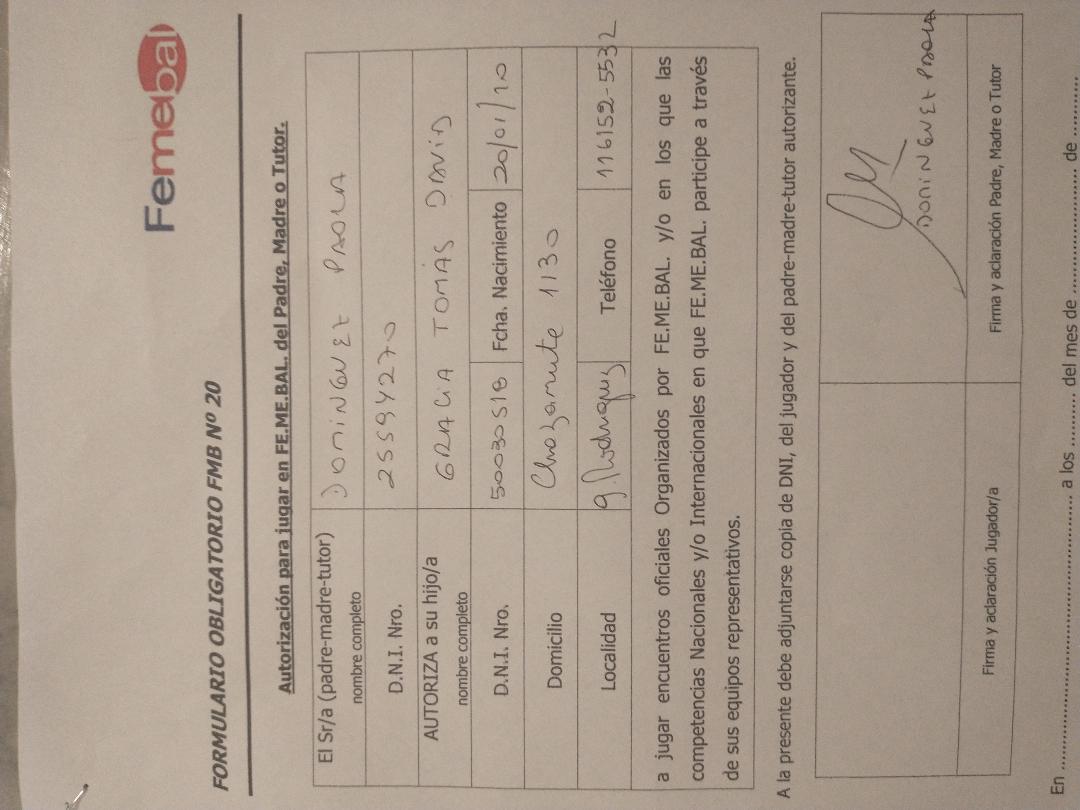 Femebal
FORMULARIO OBLIGATORIO FMB Nº 20
Autorización para jugar en FE.ME.BAL. del Padre, Madre o Tutor.
El Sr/a (padre-madre-tutor) DOMINGUEZ PAOLA
nombre completo
D.N.I. Nro. 255942270
AUTORIZA a su hijo/a GRACIA TOMÁS DAVID
nombre completo
D.N.I. Nro. 50030518 Fcha. Nacimiento 20/01/10
Domicilio 1130
Localidad g. Rodriguez Teléfono 116152-5532
a jugar encuentros oficiales Organizados por FE.ME.BAL. y/o en los que las
competencias Nacionales y/o Internacionales en que FE.ME.BAL. participe a través
de sus equipos representativos.
A la presente debe adjuntarse copia de DNI, del jugador y del padre-madre-tutor autorizante.
DOMINGUEZ PAOLA
Firma y aclaración Jugador/a Firma y aclaración Padre, Madre o Tutor
En .......................................... a los .......... del mes de .................... de ..........